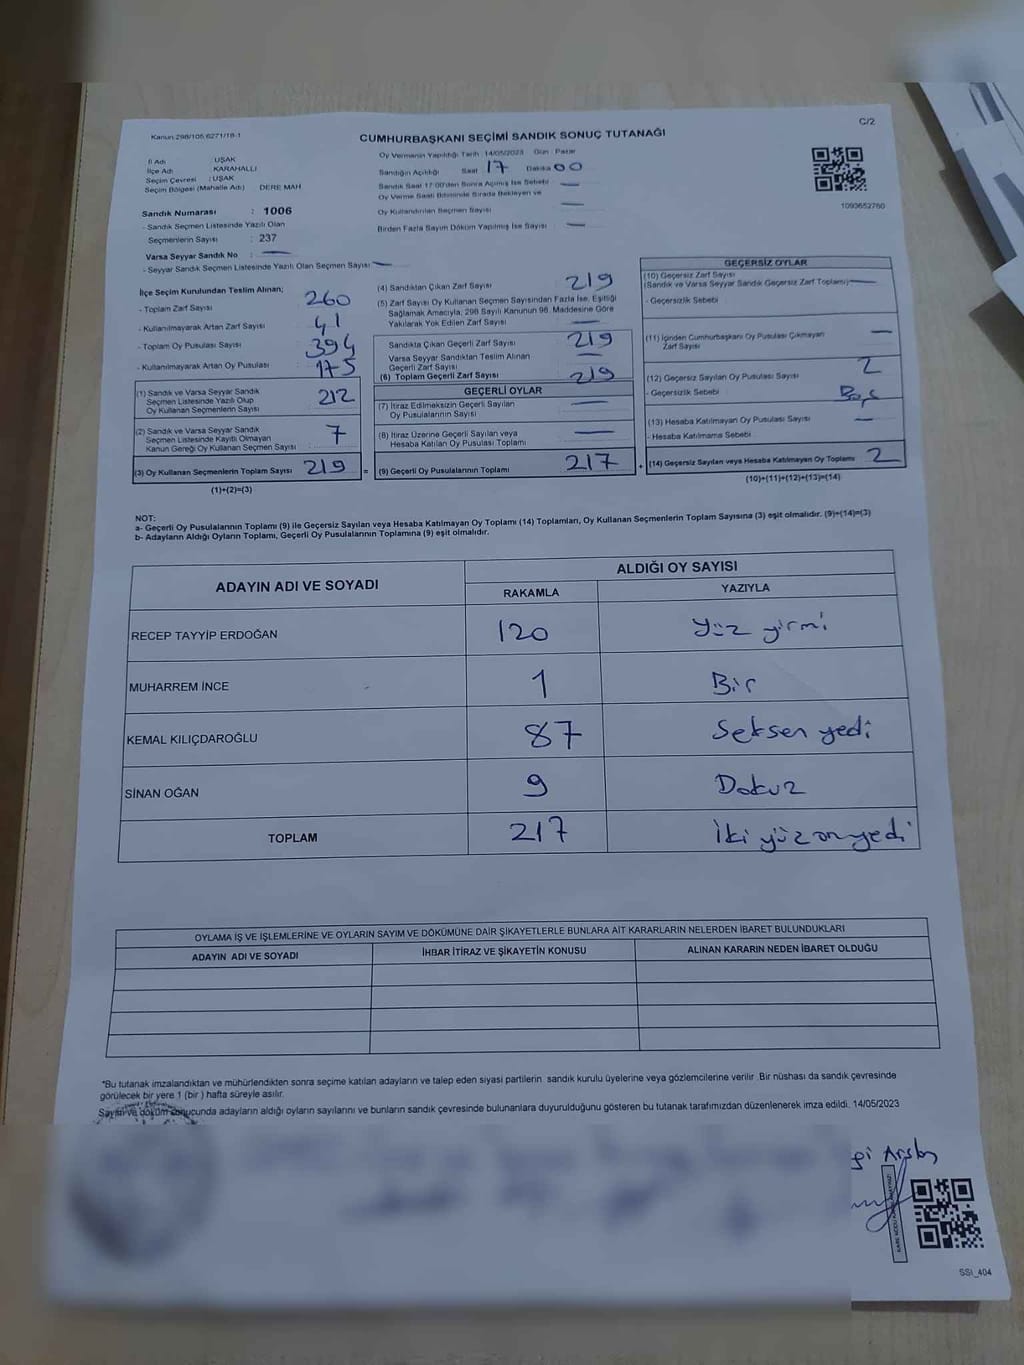 Kanun 298/105,6271/18-1
CUMHURBAŞKANI SEÇİMİ SANDIK SONUÇ TUTANAĞI
C/2
İl Adı : UŞAK
İlçe Adı : KARAHALLI
Seçim Çevresi : UŞAK
Seçim Bölgesi (Mahalle Adı) DERE MAH
Sandık Numarası : 1006
- Sandık Seçmen Listesinde Yazılı Olan
Seçmenlerin Sayısı : 237
Varsa Seyyar Sandık No : —
- Seyyar Sandık Seçmen Listesinde Yazılı Olan Seçmen Sayısı —
Oy Vermenin Yapıldığı Tarih :14/05/2023 Gün : Pazar
Sandığın Açıldığı Saat : 17 Dakika 00
Sandık Saat 17:00'den Sonra Açılmış İse Sebebi —
Oy Verme Saati Bitiminde Sırada Bekleyen ve
Oy Kullandırılan Seçmen Sayısı —
Birden Fazla Sayım Döküm Yapılmış İse Sayısı —
1093652760
İlçe Seçim Kurulundan Teslim Alınan;
- Toplam Zarf Sayısı 260
- Kullanılmayarak Artan Zarf Sayısı 41
- Toplam Oy Pusulası Sayısı 394
- Kullanılmayarak Artan Oy Pusulası 175
(1) Sandık ve Varsa Seyyar Sandık
Seçmen Listesinde Yazılı Olup
Oy Kullanan Seçmenlerin Sayısı 212
(2) Sandık ve Varsa Seyyar Sandık
Seçmen Listesinde Kayıtlı Olmayan
Kanun Gereği Oy Kullanan Seçmen Sayısı 7
(3) Oy Kullanan Seçmenlerin Toplam Sayısı 219 =
(1)+(2)=(3)
(4) Sandıktan Çıkan Zarf Sayısı 219
(5) Zarf Sayısı Oy Kullanan Seçmen Sayısından Fazla İse, Eşitliği
Sağlamak Amacıyla, 298 Sayılı Kanunun 98. Maddesine Göre
Yakılarak Yok Edilen Zarf Sayısı —
Sandıkta Çıkan Geçerli Zarf Sayısı 219
Varsa Seyyar Sandıktan Teslim Alınan
Geçerli Zarf Sayısı —
(6) Toplam Geçerli Zarf Sayısı 219
GEÇERLİ OYLAR
(7) İtiraz Edilmeksizin Geçerli Sayılan
Oy Pusulalarının Sayısı —
(8) İtiraz Üzerine Geçerli Sayılan veya
Hesaba Katılan Oy Pusulası Toplamı —
(9) Geçerli Oy Pusulalarının Toplamı 217 +
GEÇERSİZ OYLAR
(10) Geçersiz Zarf Sayısı
(Sandık ve Varsa Seyyar Sandık Geçersiz Zarf Toplamı) —
- Geçersizlik Sebebi
(11) İçinden Cumhurbaşkanı Oy Pusulası Çıkmayan
Zarf Sayısı —
(12) Geçersiz Sayılan Oy Pusulası Sayısı 2
- Geçersizlik Sebebi Boş
(13) Hesaba Katılmayan Oy Pusulası Sayısı —
- Hesaba Katılmama Sebebi
(14) Geçersiz Sayılan veya Hesaba Katılmayan Oy Toplamı 2
(10)+(11)+(12)+(13)=(14)
NOT:
a- Geçerli Oy Pusulalarının Toplamı (9) ile Geçersiz Sayılan veya Hesaba Katılmayan Oy Toplamı (14) Toplamları, Oy Kullanan Seçmenlerin Toplam Sayısına (3) eşit olmalıdır. (9)+(14)=(3)
b- Adayların Aldığı Oyların Toplamı, Geçerli Oy Pusulalarının Toplamına (9) eşit olmalıdır.
ADAYIN ADI VE SOYADI
ALDIĞI OY SAYISI
RAKAMLA YAZIYLA
RECEP TAYYİP ERDOĞAN 120 Yüz yirmi
MUHARREM İNCE 1 Bir
KEMAL KILIÇDAROĞLU 87 Seksen yedi
SİNAN OĞAN 9 Dokuz
TOPLAM 217 İki yüz on yedi
OYLAMA İŞ VE İŞLEMLERİNE VE OYLARIN SAYIM VE DÖKÜMÜNE DAİR ŞİKAYETLERLE BUNLARA AİT KARARLARIN NELERDEN İBARET BULUNDUKLARI
ADAYIN ADI VE SOYADI İHBAR İTİRAZ VE ŞİKAYETİN KONUSU ALINAN KARARIN NEDEN İBARET OLDUĞU
*Bu tutanak imzalandıktan ve mühürlendikten sonra seçime katılan adayların ve talep eden siyasi partilerin sandık kurulu üyelerine veya gözlemcilerine verilir .Bir nüshası da sandık çevresinde
görülecek bir yere 1 (bir ) hafta süreyle asılır.
Sayım ve döküm sonucunda adayların aldığı oyların sayılarını ve bunların sandık çevresinde bulunanlara duyurulduğunu gösteren bu tutanak tarafımızdan düzenlenerek imza edildi. 14/05/2023
SSI_404